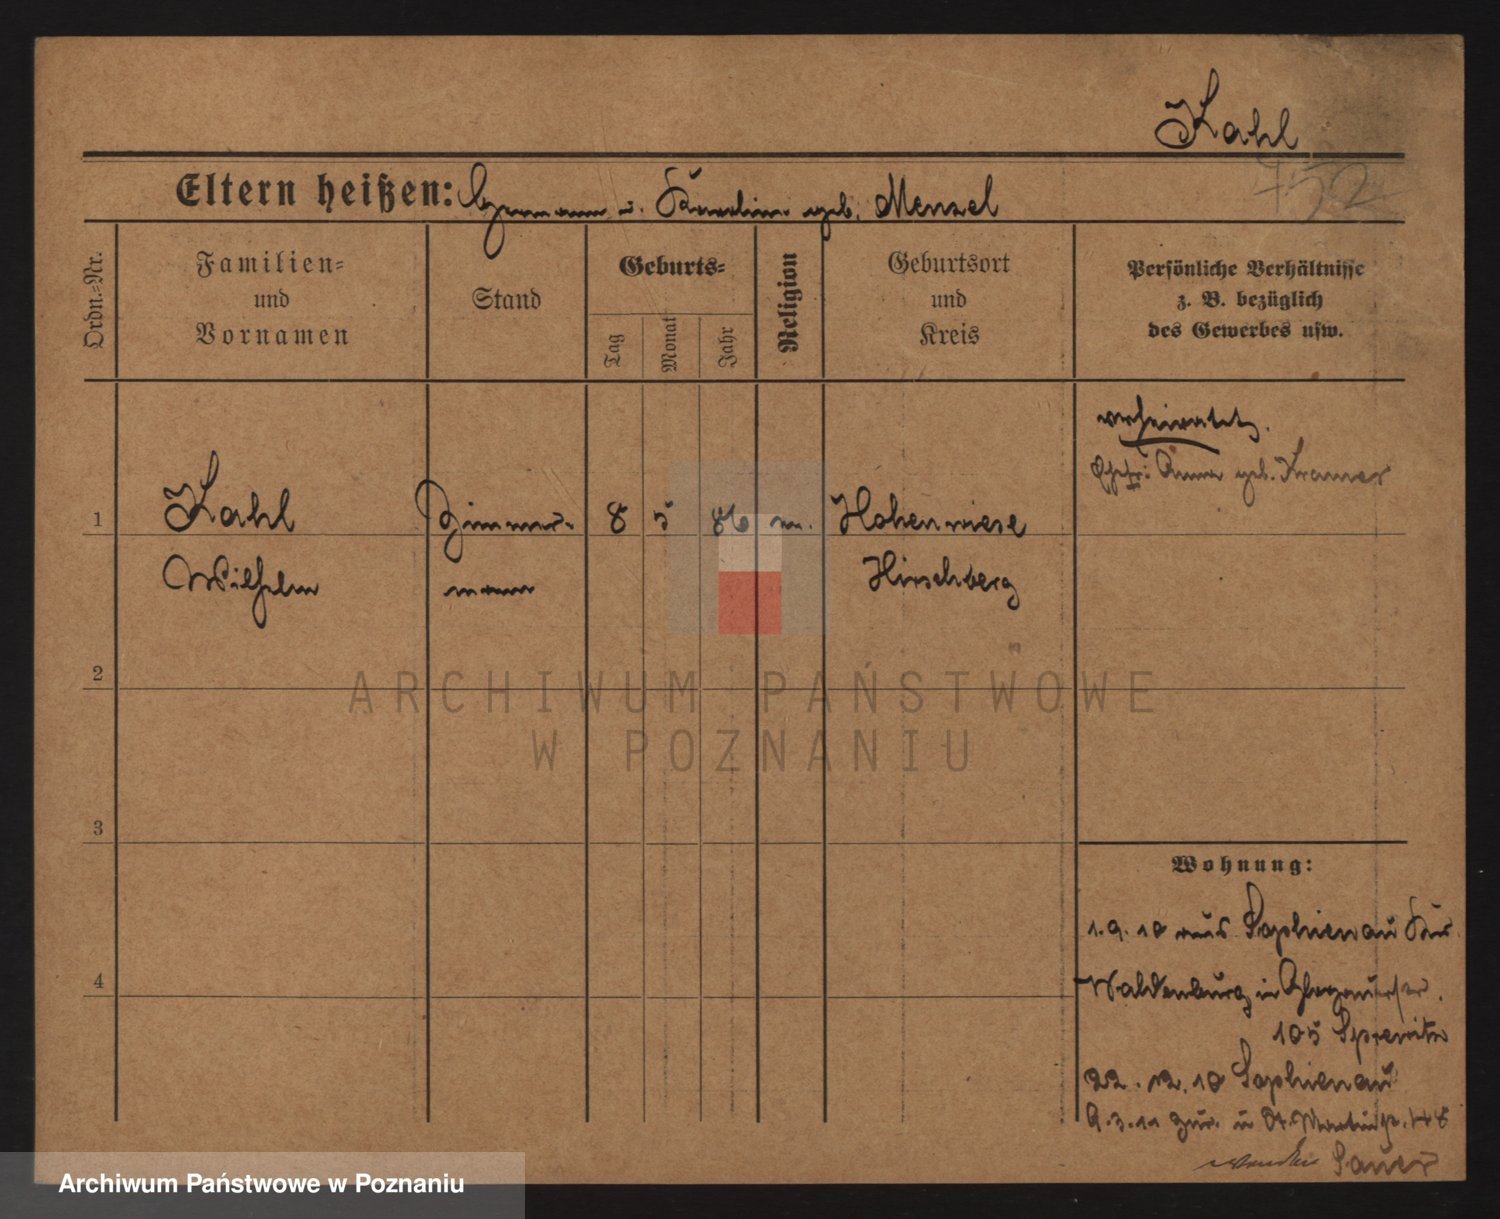 Kahl
452
Eltern heißen: Hermann u. Karoline geb. Menzel
Ordn.=Nr.
Familien=
und
Vornamen
Stand
Geburts=
Tag
Monat
Jahr
Religion
Geburtsort
und
Kreis
Persönliche Verhältnisse
z. B. bezüglich
des Gewerbes usw.
verheiratet.
Ehefr: Anna geb. Kramer
1
Kahl
Wilhelm
Zimmer-
mann
8
5
86
Hohenwiese
Hirschberg
2
3
4
Wohnung:
1.9.10 aus Sophienau Krs.
Waldenburg in
105
22.12.10 Sophienau
9.3.11 zur. u St. Martinstr. 48
Sauer
ARCHIWUM PAŃSTWOWE
W POZNANIU
Archiwum Państwowe w Poznaniu